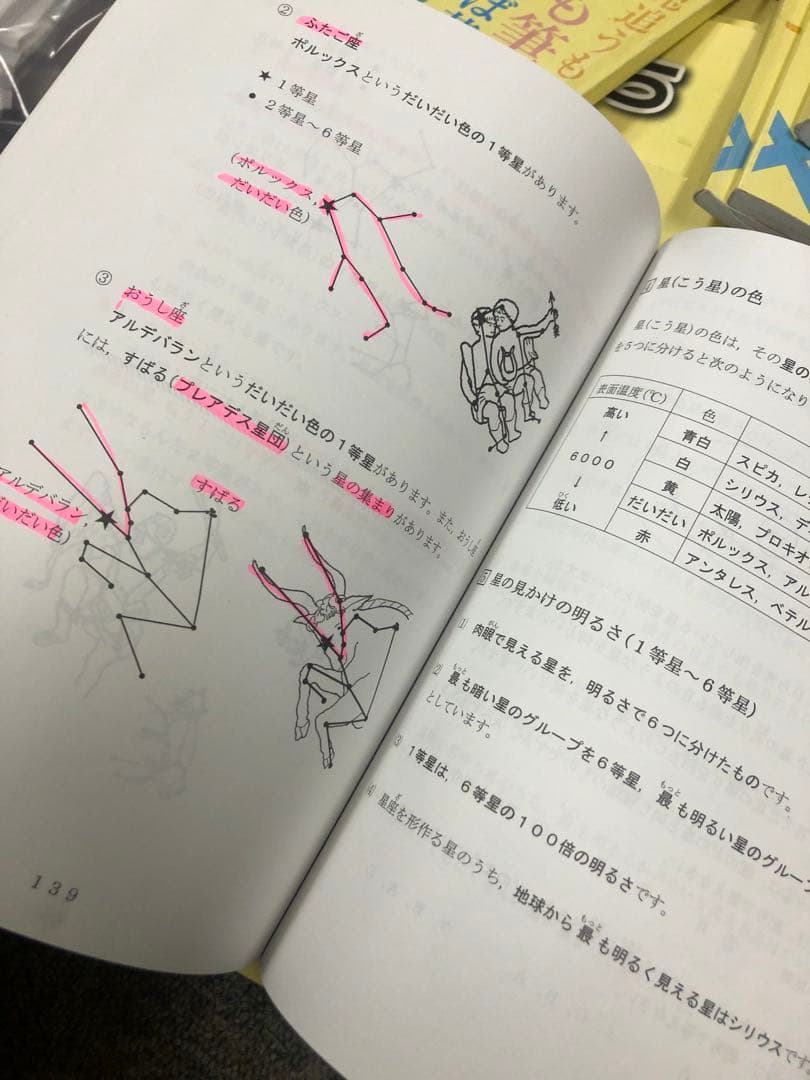 ② ふたご座
ポルックスというだいだい色の1等星があります。
★ 1等星
● 2等星〜6等星
(ポルックス,
だいだい色)
③ おうし座
アルデバランというだいだい色の1等星があります。また,おうし座
には,すばる(プレアデス星団)という星の集まりがあります。
アルデバラン,
だいだい色)
すばる
139
4 星(こう星)の色
星(こう星)の色は,その星の
を5つに分けると次のようになり
表面温度(℃) 色
高い 青白 スピカ,レ
↑ 白 シリウス,デ
6000 黄 太陽,プロキオ
↓ だいだい ポルックス,アル
低い 赤 アンタレス,ベテル
5 星の見かけの明るさ(1等星〜6等星)
(1) 肉眼で見える星を,明るさで6つに分けたものです。
(2) 最も暗い星のグループを6等星,最も明るい星のグループ
としています。
(3) 1等星は,6等星の100倍の明るさです。
(4) 星座を形作る星のうち,地球から最も明るく見える星はシリウスです
通うも
も筆
ば
5